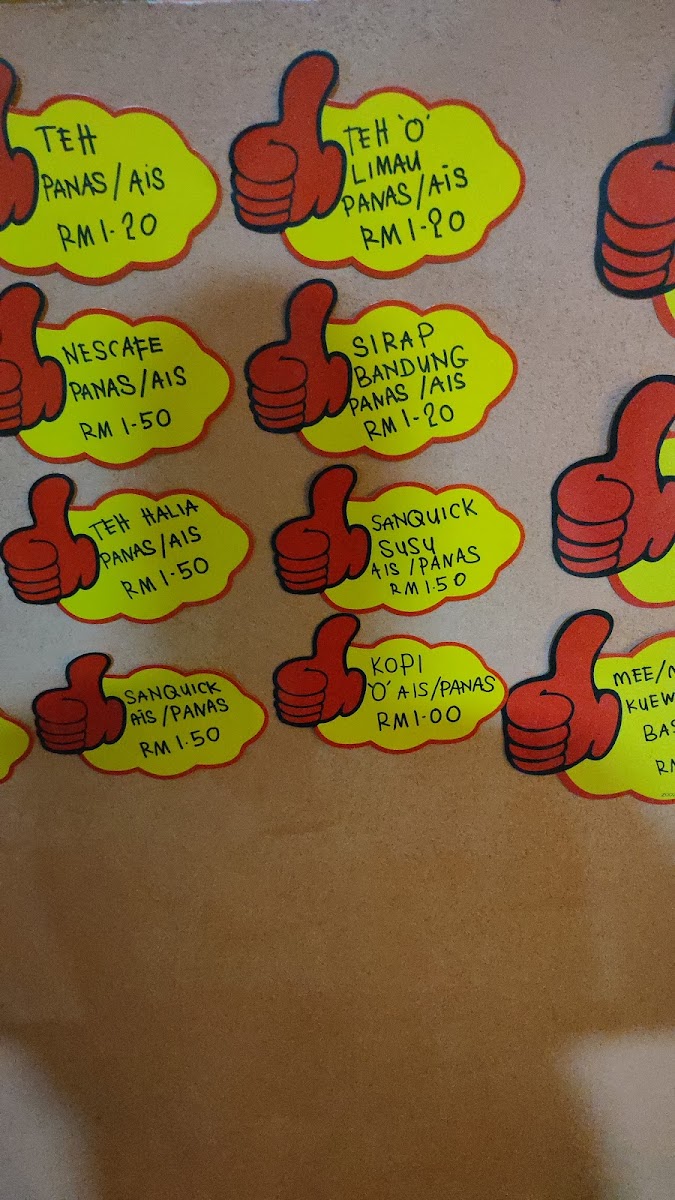 TEH
PANAS/AIS
RM 1.20
TEH 'O'
LIMAU
PANAS/AIS
RM 1.20
NESCAFE
PANAS/AIS
RM 1.50
SIRAP
BANDUNG
PANAS/AIS
RM 1.20
TEH HALIA
PANAS/AIS
RM 1.50
SANQUICK
SUSU
AIS/PANAS
RM 1.50
SANQUICK
AIS/PANAS
RM 1.50
KOPI
'O' AIS/PANAS
RM 1.00
MEE/
KUEW
BAS